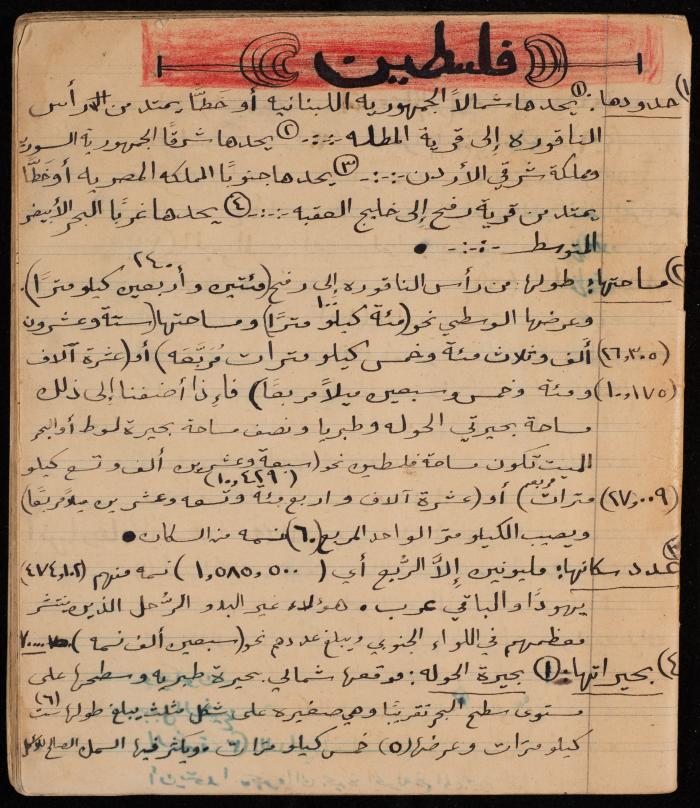 فلسطين
١) حدودها: ① يحدها شمالاً الجمهورية اللبنانية أو خطًّا يمتد من رأس
الناقوره إلى قرية المطله -:-:- ② يحدها شرقًا الجمهورية السورية
ومملكة شرقي الأردن -:-:- ③ يحدها جنوبًا المملكه المصريه أو خطًّا
يمتد من قرية رفح إلى خليج العقبه -:-:- ④ يحدها غربًا البحر الأبيض
المتوسط -:-:- •
٢٤٠
٢) مساحتها: طولها من رأس الناقوره إلى رفح (مئتين وأربعين كيلو مترًا).
١٠٠
وعرضها الوسطي نحو (مئة كيلو مترًا) ومساحتها (ستة وعشرون
(٢٦,٣٠٥) ألف وثلاث مئة وخمس كيلو مترات مُربَّعَه) أو (عشرة آلاف
(١٠,١٧٥) ومئة وخمس وسبعين ميلاً مربعًا) فإذا أضفنا إلى ذلك
مساحة بحيرتي الحوله وطبريا ونصف مساحة بحيرة لوط أو البحر
الميت تكون مساحة فلسطين نحو (سبعة وعشرين ألف وتسع كيلو
(١٠,٤٢٩)
(٢٧,٠٠٩) مترات مُربعه) أو (عشرة آلاف واربع مئة وتسعه وعشرين ميلاً مربعًا)
ويصيب الكيلو متر الواحد المربع (٦٠) نسمه من السكان •
٣) عدد سكانها: مليونين إلاَّ الرُّبع أي (١,٥٨٥,٥٠٠) نسمه منهم (٤٧٤,١٠٢)
يهودًا والباقي عرب • هؤلاء غير البدو الرُّحل الذين ينتشر
معظمهم في اللواء الجنوبي ويبلغ عددهم نحو (سبعين ألف نسمه) ٧٠,٠٠٠
٤) بحيراتها: ① بحيرة الحوله: موقعها شمالي بحيرة طبريه وسطحها على
مستوى سطح البحر تقريبًا وهي صغيره على شكل مثلث يبلغ طولها ست (٦)
كيلو مترات وعرضها (٥) خمس كيلو مترات ويكثر فيها السمك الصالح للأكل